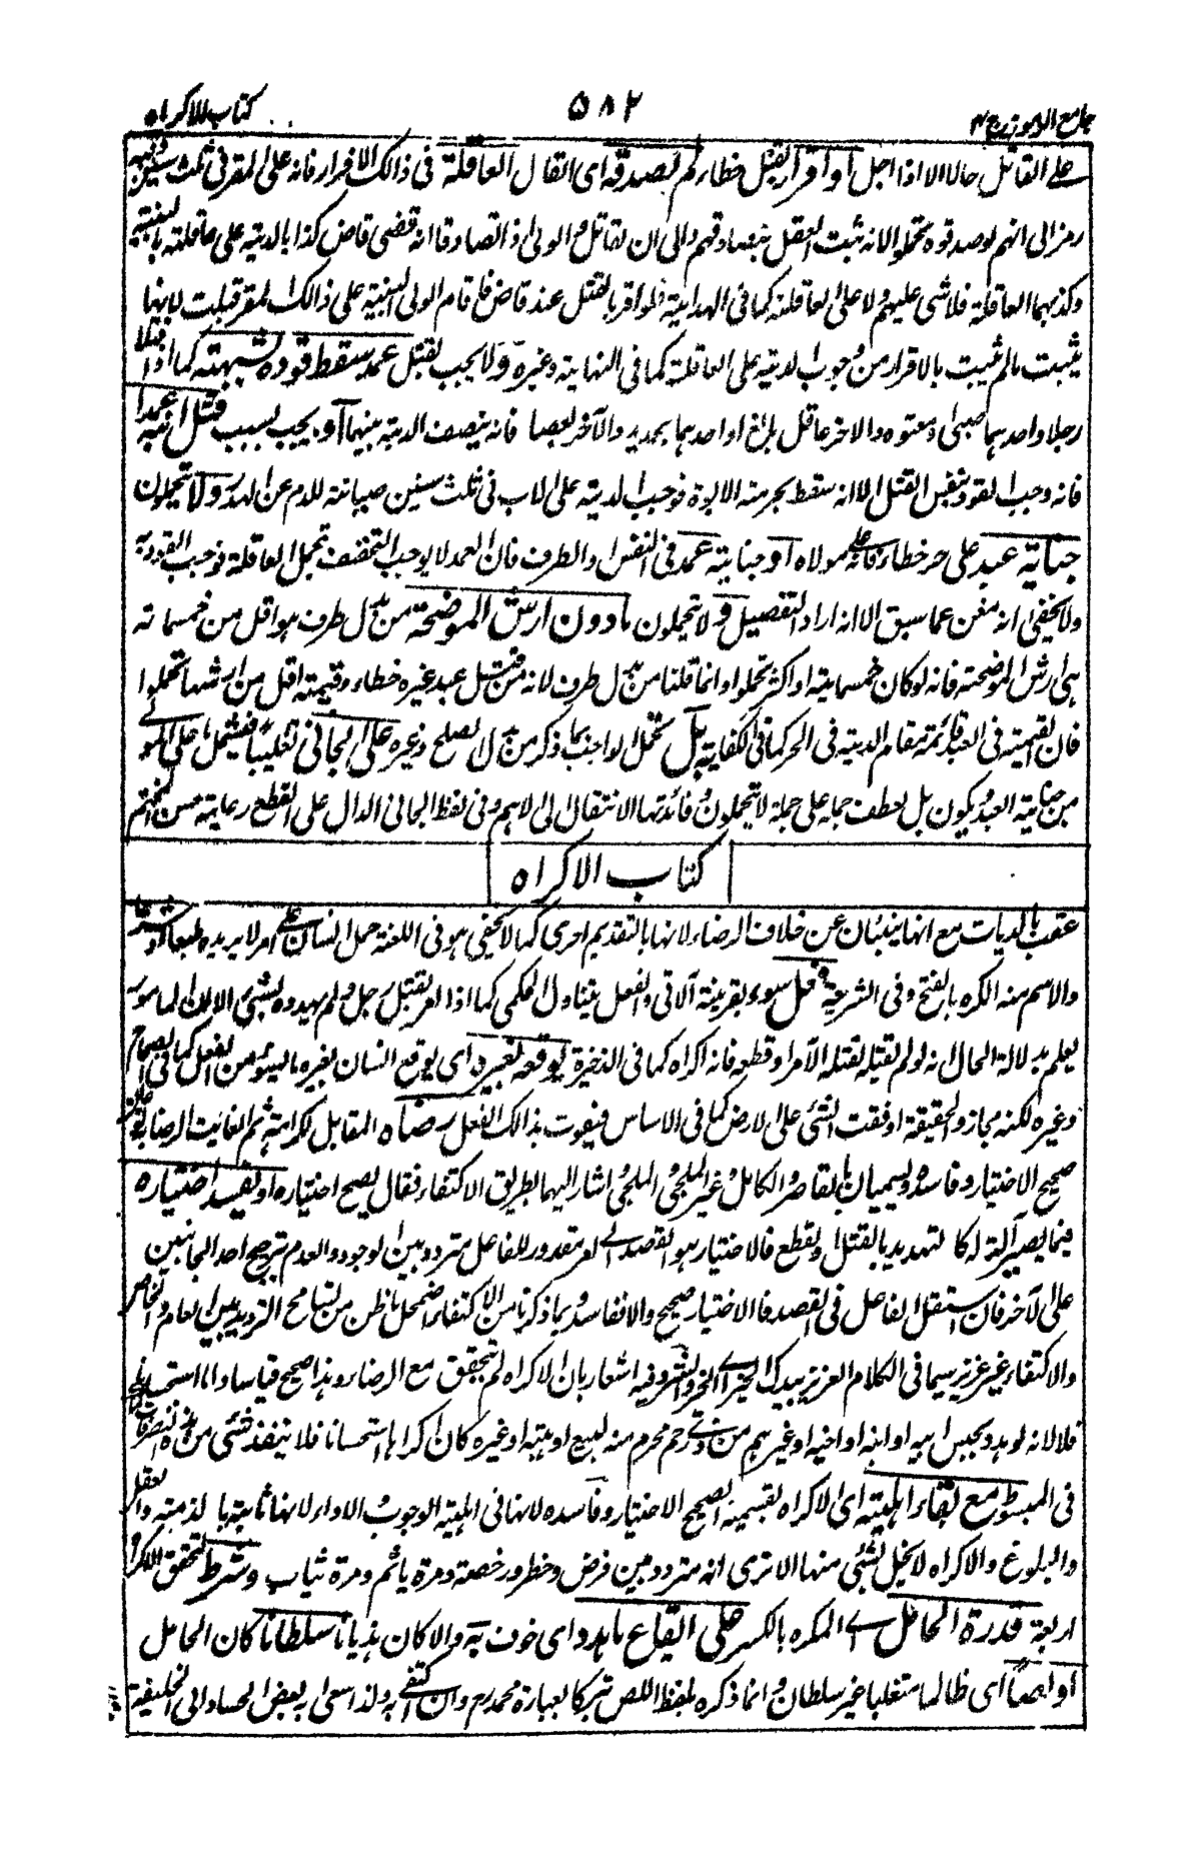 جامع الرموز ج ٢
٥٨٢
كتاب الاكراه
على القاتل حالا الا اذا اجل او اقر بقتل خطاء لم يصدقه اى القاتل العاقلة فى ذالك الاقرار فانه على المقر فى ثلث سنين وفيه
رمز الى انهم لو صدقوه تحملوا لانه ثبت العقل بتصادقهم والى ان القاتل والولى لو تصادقا انه قضى قاض كذا بالدية على عاقلته بالبينة
وكذبهما العاقلة فلا شى عليهم ولا على العاقلة كما فى الهداية ولو اقر بالقتل عند قاض فلو اقام الولى البينة على ذالك المقر قبلت لانها
يثبت مالم يثبت بالاقرار من وجوب الدية على العاقلة كما فى النهاية وغيره ولا يجب بقتل عمد سقط قوده لشبهته كما اذا قتلا
رجلا واحدهما صبى او معتوه والاخر عاقل بالغ او احدهما بحديد والآخر بعصا فانه ينصف الدية بينهما او يجب بسبب قتل ابنه عمدا
فانه وجب القود بنفس القتل الا انه سقط بحرمته الابوة فوجب الدية على الاب فى ثلث سنين صيانة للدم عن الهدر ولا تتحملون
جناية عبد على حر خطاء فانه على مولاه او جناية عمد فى النفس والطرف فان العمد لا يوجب التخفيف تحمل العاقلة فوجب القود به
ولا يخفى انه مغن عما سبق الا انه اراد التفصيل ولا تتحملون مادون ارش الموضحة من بدل طرف هو اقل من خمسماته
هى ارش الموضحة فانه لو كان خمسماية او اكثر تحملوا وانما قلنا من بدل طرف لانه من قتل عبد غيره خطاء وقيمته اقل من ارشها تحملوا
فان القيمة فى العبد قائمة مقام الدية فى الحر كما فى الكفاية بل تحمل الواجب بما ذكر من بدل الصلح وغيره على الجانى تغليبا فيشمل ما على المولى
من جناية العبد ويكون بل لعطف جملة على جملة لا تتحملون وفائدتها الانتقال الى الاهم وفى لفظ الجانى الدال على القطع رعاية حسن المختتم
كتاب الاكراه
عقب بالديات مع انهما ينبئان عن خلاف الرضاء لانها بالتقديم احرى كما لا يخفى هو فى اللغة حمل انسان على امر لا يريده طبعا او شرعا
والاسم منه الكره بالفتح وفى الشريعة فعل سوء بقرينة الآتى والفعل يتناول الحكمى كما اذا امر بقتل رجل ولم يهدده بشئ الا ان المامور
يعلم بدلالة الحال انه لو لم يقتله لقتله الآمر او قطعه فانه اكراه كما فى الذخيرة يوقعه بغيره اى يوقع انسان بغيره ما يسوءه من الفعل كما فى الصحاح
وغيره لكنه مجاز والحقيقة اوقعت الشئى على الارض كما فى الاساس فيفوت بذالك الفعل رضاه المقابل للكراهة ثم الفائت الرضا
صحيح الاختيار وفاسده ويسميان بالقاصر والكامل وغير الملجئ والملجئ اشار اليهما بطريق الاكتفاء فقال يصح اختياره او يفسد اختياره
فيما يصير آلة له كالتهديد بالقتل والقطع فالاختيار هو القصد الى امر مقدور للفاعل متردد بين الوجود والعدم بترجيح احد الجانبين
على الآخر فان استقل الفاعل فى القصد فالاختيار صحيح والا ففاسد وبما ذكرنا من الاكتفاء اضمحل ما ظن من تسامح الترديد بين العام والخاص
والاكتفاء غير عزيز سيما فى الكلام العزيز بيدك الخير اى الخير والشر وفيه اشعار بان الاكراه لم يتحقق مع الرضاء وهذا صحيح قياسا واما استحسانا
فلا لانه لو هدد بحبس ابيه او ابنه او اخيه او غيرهم من ذى رحم محرم منه لبيع او هبة او غيره كان اكراها استحسانا فلا ينفذ شئى من هذه التصرفات كما
فى المبسوط مع بقاء اهليته اى الاكراه بقسميه الصحيح الاختيار وفاسده لا ينافى اهلية الوجوب والاداء لانها ثابتة بالذمة والعقل
والبلوغ والاكراه لا يخل بشئى منها الا ترى انه متردد بين فرض وحظر ورخصة ومرة ياثم ومرة يثاب وشرط لتحقق الاكراه
اربعة قدرة الحامل اى المكره بالكسر على ايقاع ما هدد اى خوف به والا كان هذيانا سلطانا كان الحامل
او لصا اى ظالما متغلبا غير سلطان وانما ذكره بلفظ اللص تبركا بعبارة محمد رح